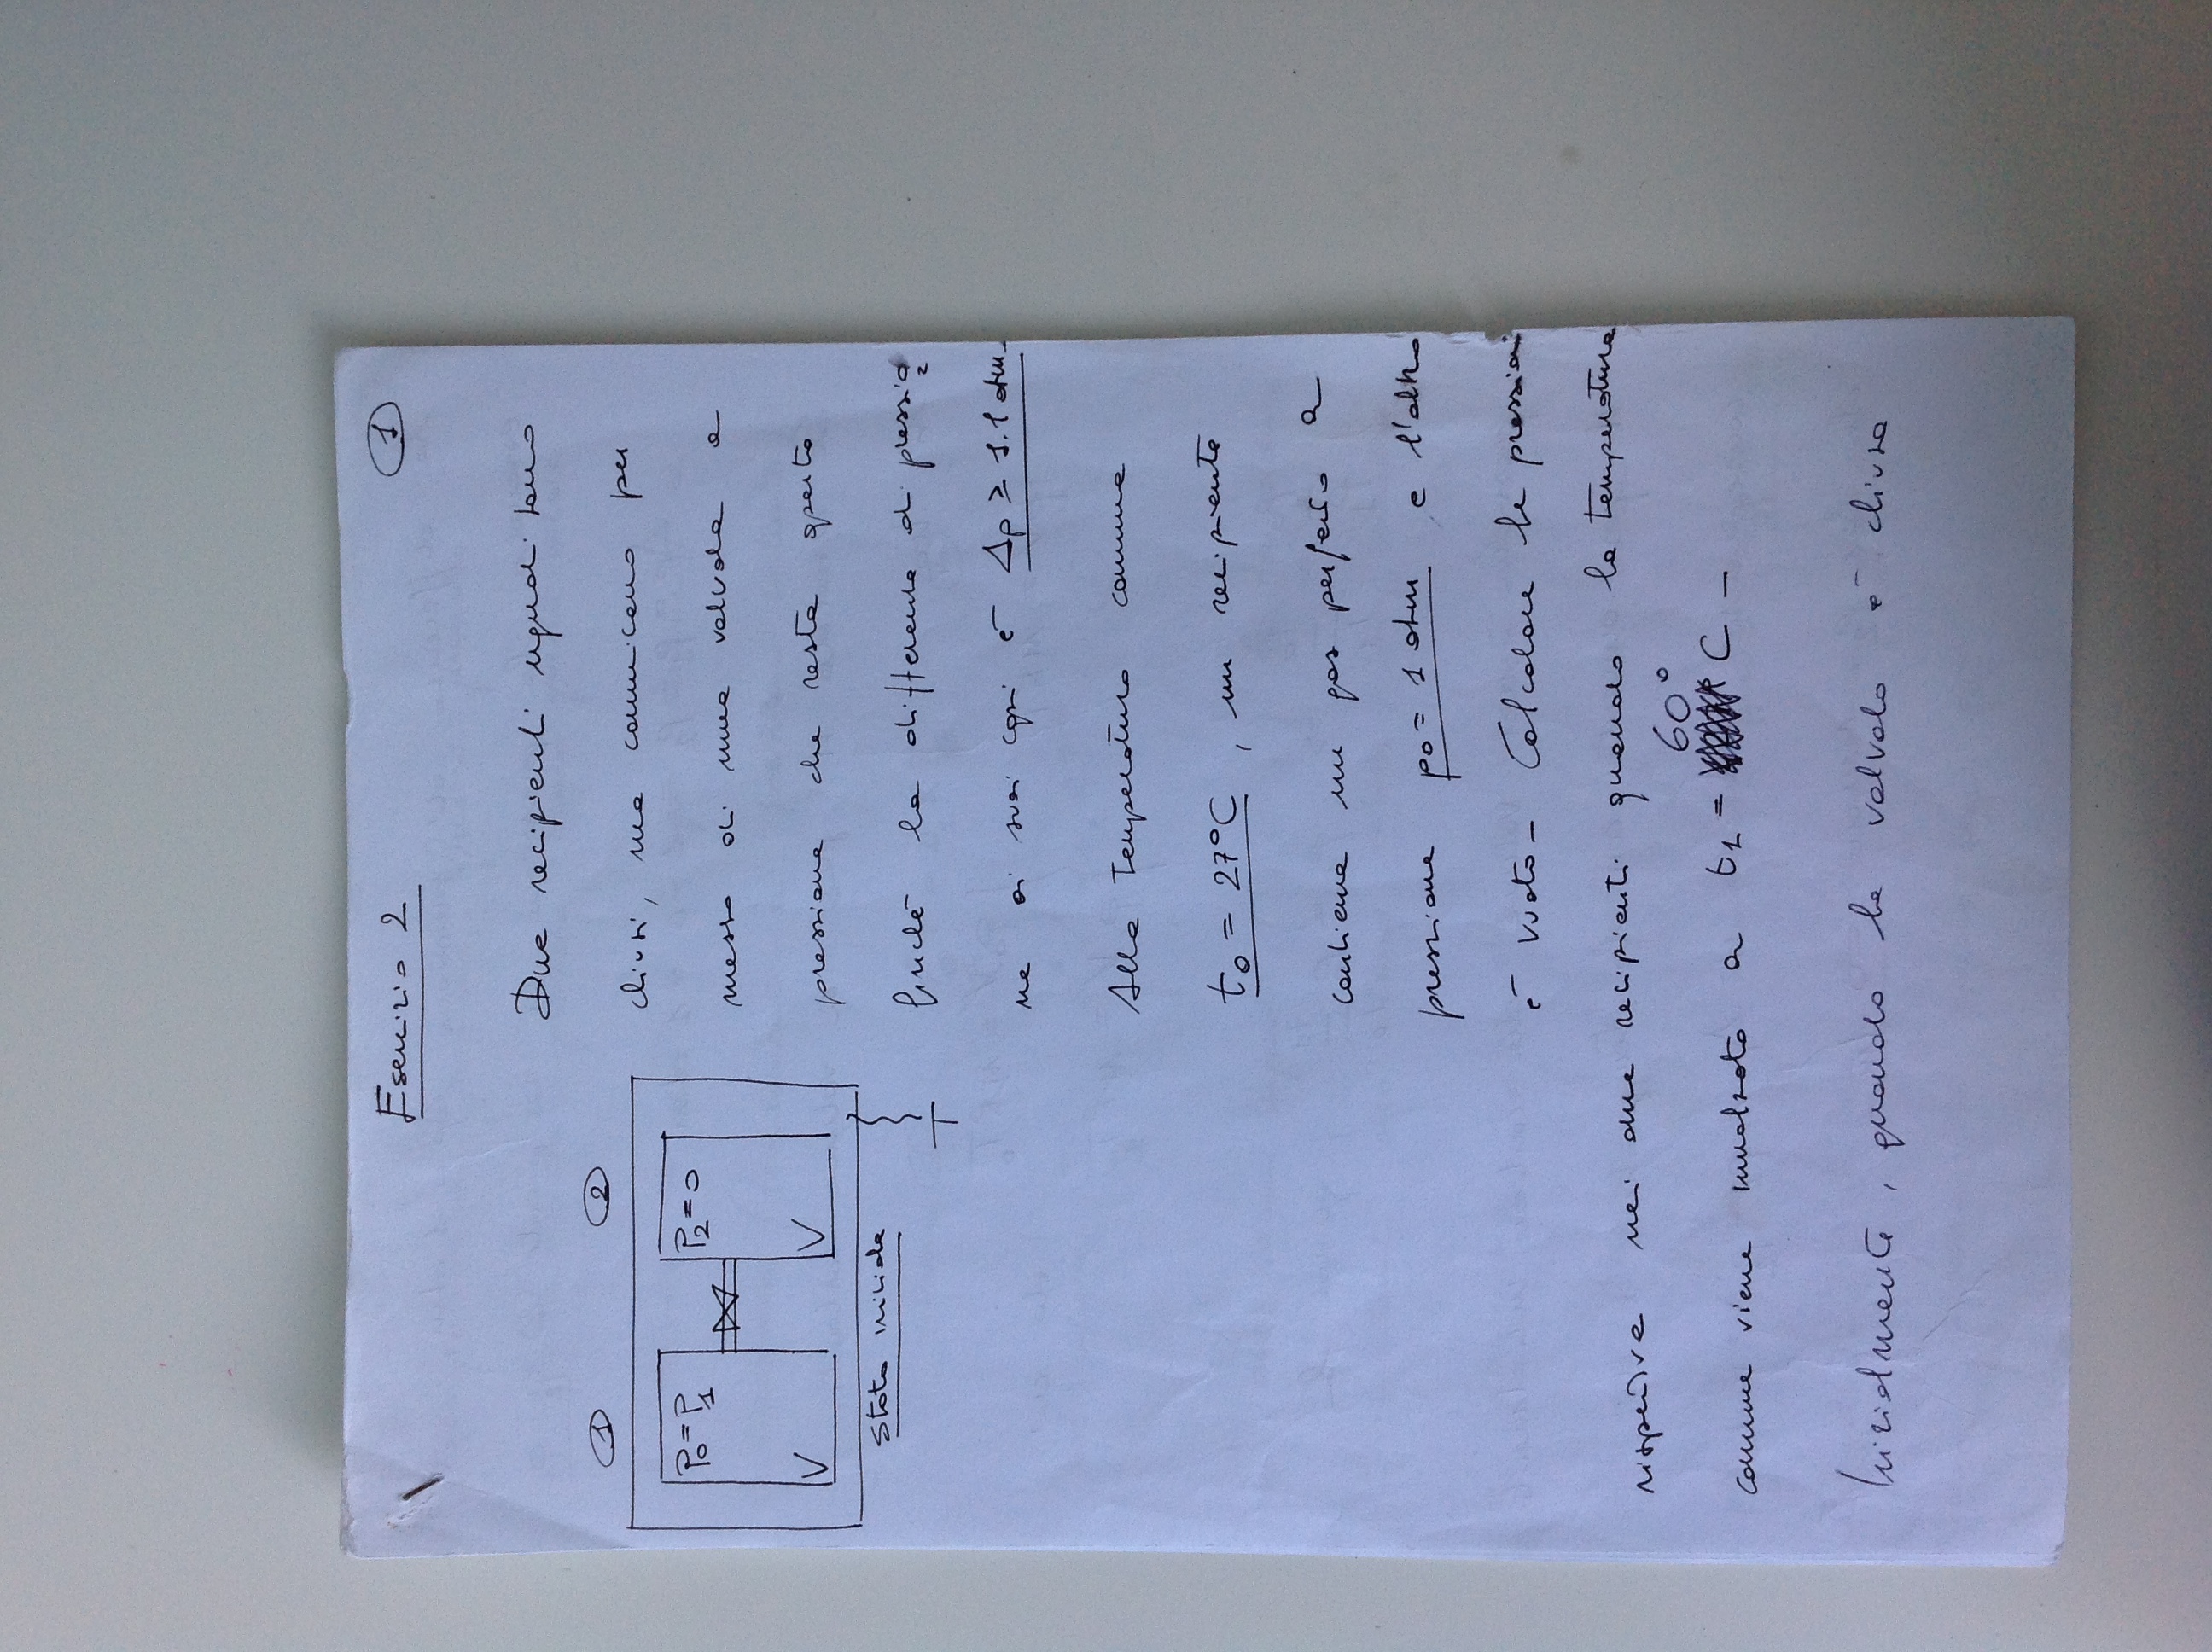 Esercizio 2
1
Due recipienti uguali sono
chiusi, ma comunicano per
mezzo di una valvola a
pressione che resta aperta
finché la differenza di pressio
ne ai suoi capi è Δp ≥ 1.1 atm.
Alla temperatura comune
t₀ = 27°C, un recipiente
contiene un gas perfetto a
pressione p₀ = 1 atm e l'altro
è vuoto - Calcolare le pressioni
rispettive nei due recipienti quando la temperatura
comune viene innalzata a t₁ = 60° C -
Inizialmente, quando la valvola è chiusa
1 2
p₀=p₁ p₂=0
V V
Stato iniziale
T